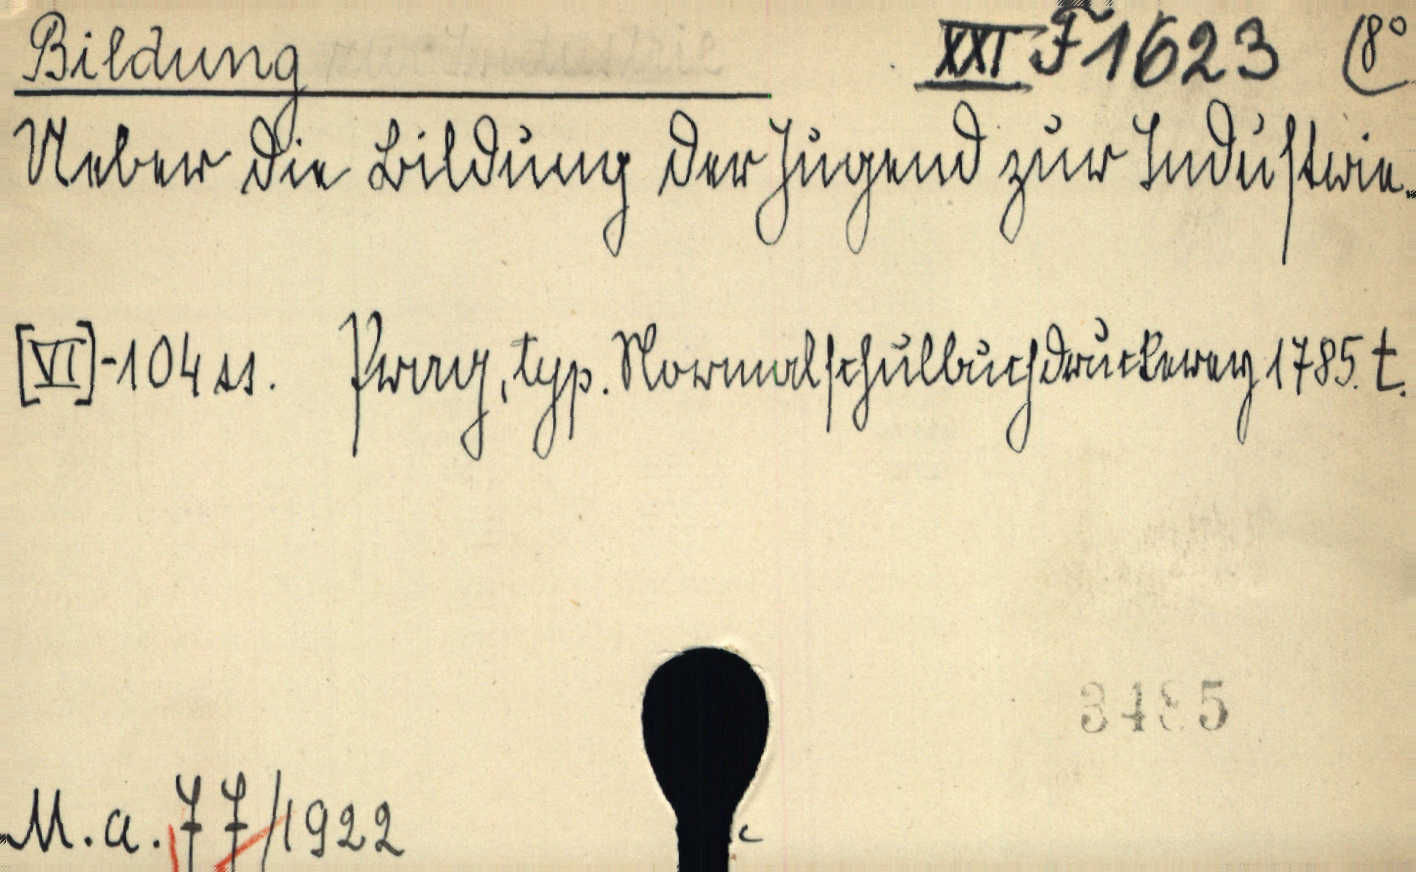 Bildung XXI F 1623 (8°
Ueber die Bildung der Jugend zur Industrie.
[VI]-104 ss. Prag, typ. Normalschulbuchdruckerey 1785. t.
M. a. 77/1922
c